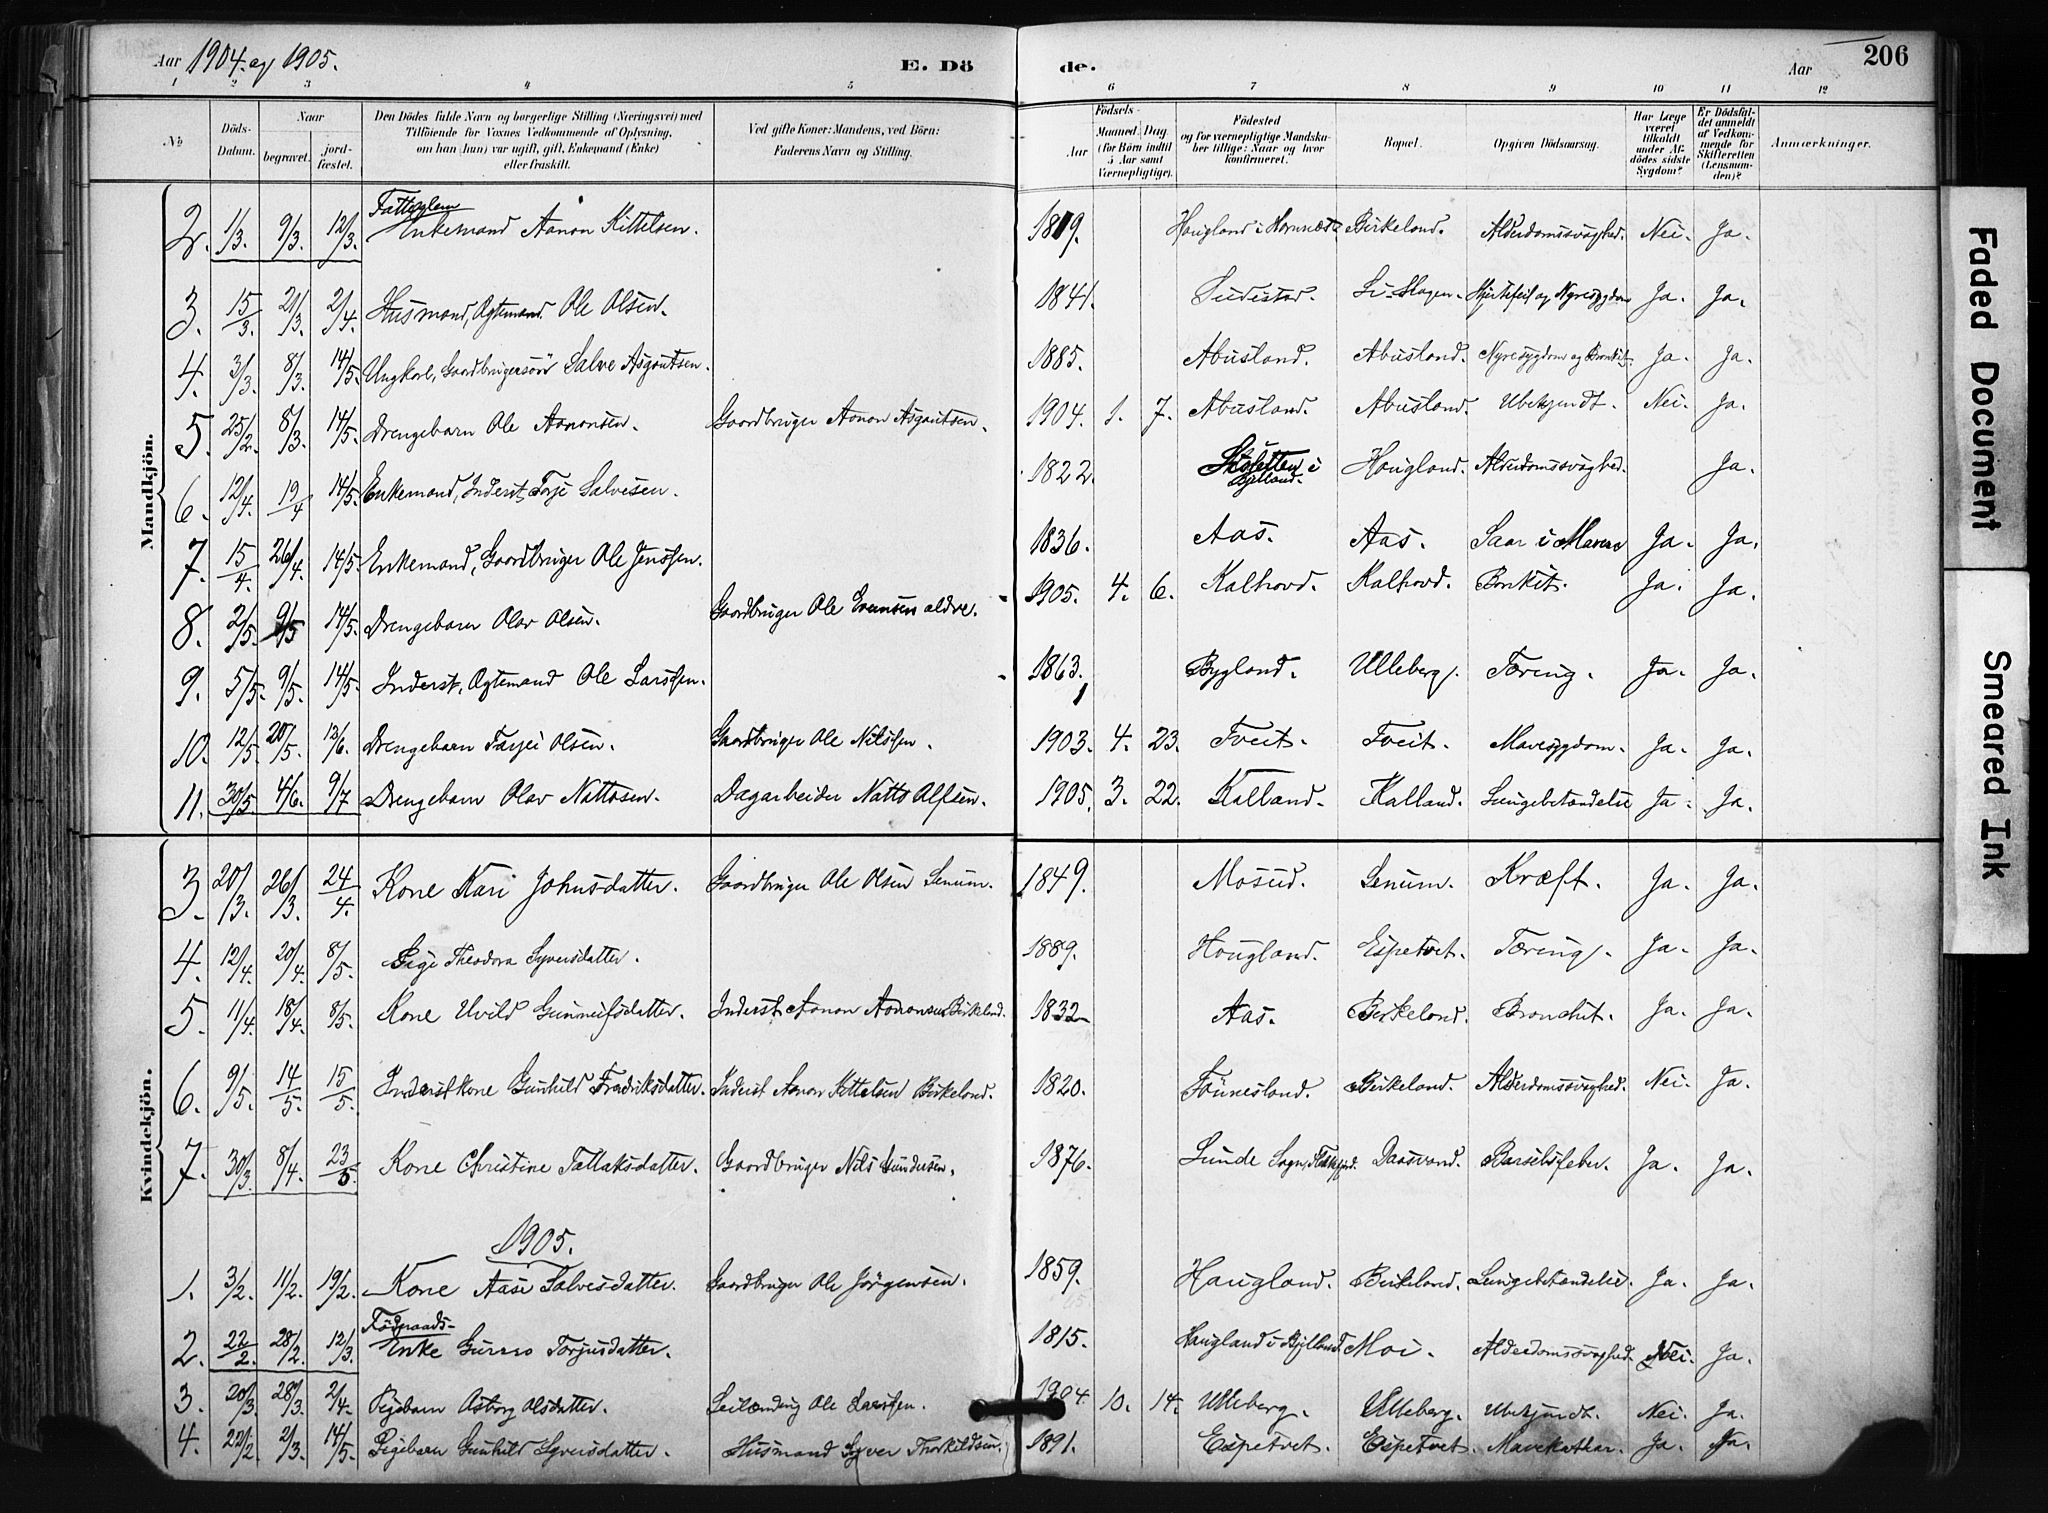 Aar 1904 og 1905. E. Dö de. Aar 206
1 2 3 4 5 6 7 8 9 10 11 12
№ Döds-Datum. Naar begravet. jord-fæstet. Den Dödes fulde Navn og borgerlige Stilling (Næringsvei) med Tilföiende for Voxnes Vedkommende af Oplysning, om han (hun) var ugift, gift, Enkemand (Enke) eller fraskilt. Ved gifte Koner: Mandens, ved Börn: Faderens Navn og Stilling. Födsels- Aar Maaned. Dag (for Börn indtil 5 Aar samt Værnepligtige). Födested og for værnepligtige Mandskaber tillige: Naar og hvor konfirmeret. Bopæl. Opgiven Dödsaarsag. Har Læge været tilkaldt under Afdödes sidste Sygdom? Er Dödsfaldet anmeldt af Vedkommende for Skifteretten (Lensmanden)? Anmærkninger.
Mandkjön.
2. 1/3. 9/3. 12/3. Enkemand Aanon Kittelsen. 1819. Haugland i Hornnæs Birkeland. Alderdomssvaghed. Nei. Ja.
3. 15/3. 21/3. 2/4. Husmand, Ægtemand Ole Olsen. 1841. Hjertefeil og Nyresygdom Ja. Ja.
4. 3/3. 8/3. 14/5. Ungkarl, Gaardbrugersön Salve Asgautsen. 1885. Abusland. Abusland. Nyresygdom og Bronkit. Ja. Ja.
5. 25/2. 8/3. 14/5. Drengebarn Ole Aanonsen. Gaardbruger Aanon Asgautsen. 1904. 1. 7. Abusland. Abusland. Ubekjendt. Nei. Ja.
6. 12/4. 19/4 14/5. Enkemand, Inderst, Terje Salvesen. 1822. Sloletten i Bjelland. Haugland. Alderdomssvaghed. Ja.
7. 15/4. 26/4. 14/5. Enkemand, Gaardbruger Ole Jenssen. 1836. Aas. Aas. Saar i Maven Ja. Ja.
8. 2/5. 9/5 14/5. Drengebarn Olav Olsen. Gaardbruger Ole Evensen ældre. 1905. 4. 6. Kalhovd. Kalhovd. Bronkit. Ja. Ja.
9. 5/5. 9/5. 14/5. Inderst, Ægtemand Ole Larssen. 1863. Bygland. Ulleberg. Tæring. Ja. Ja.
10. 12/5. 20/5. 13/6. Drengebarn Tarjei Olsen. Gaardbruger Ole Nilssen. 1903. 4. 23. Tveit. Tveit. Mavesygdom. Ja. Ja.
11. 30/5. 4/6. 9/7 Drengebarn Olav Nattosen. Dagarbeider Natto Alfsen. 1905. 3. 22. Kalland. Kalland. Lungebetændelse Ja. Ja.
Kvindekjön.
3. 20/3. 26/3. 24/4. Kone Kari Johnsdatter. Gaardbruger Ole Olsen Senum. 1849. Mosud. Senum. Kræft. Ja. Ja.
4. 12/4. 20/4. 8/5. Pige Theodora Syversdatter. 1889. Hougland. Espetvet. Tæring. Ja. Ja.
5. 11/4. 18/4. 8/5. Kone Uvild Gunnulfsdatter. Inderst Aanon Aanonsen Birkeland. 1832 Aas. Birkeland. Bronchit. Ja. Ja.
6. 9/5. 14/5. 15/5. Inderstkone Gunhild Fredriksdatter. Inderst Aanon Kittelsen Birkeland. 1820. Fönnesland. Birkeland. Alderdomssvaghed. Nei. Ja.
7. 30/3. 8/4. 23/5. Kone Christine Tallaksdatter. Gaardbruger Nils Gundersen. 1876. Lunde Sogn, Daasvand. Barselsfeber. Ja. Ja.
1905.
1. 3/2. 11/2. 19/2. Kone Aase Salvesdatter. Gaardbruger Ole Jörgensen. 1859. Haugland. Birkeland. Lungebetændelse. Ja. Ja.
2. 22/2. 28/2. 12/3. Föderaads-Enke Gurro Torjusdatter. 1815. Haugland i Bjelland. Moi. Alderdomssvaghed. Nei. Ja.
3. 20/3. 28/3. 2/4. Pigebarn Asborg Olsdatter. Leilænding Ole Larssen. 1904. 10. 14. Ulleberg. Ulleberg. Ubekjendt. Nei. Ja.
4. 22/2. 2/3. 14/5. Pigebarn Gunhild Syversdatter. Husmand Syver Thorkildsen. 1891. Espetvet. Espetvet. Mavekathar. Ja. Ja.
Faded Document
Smeared Ink